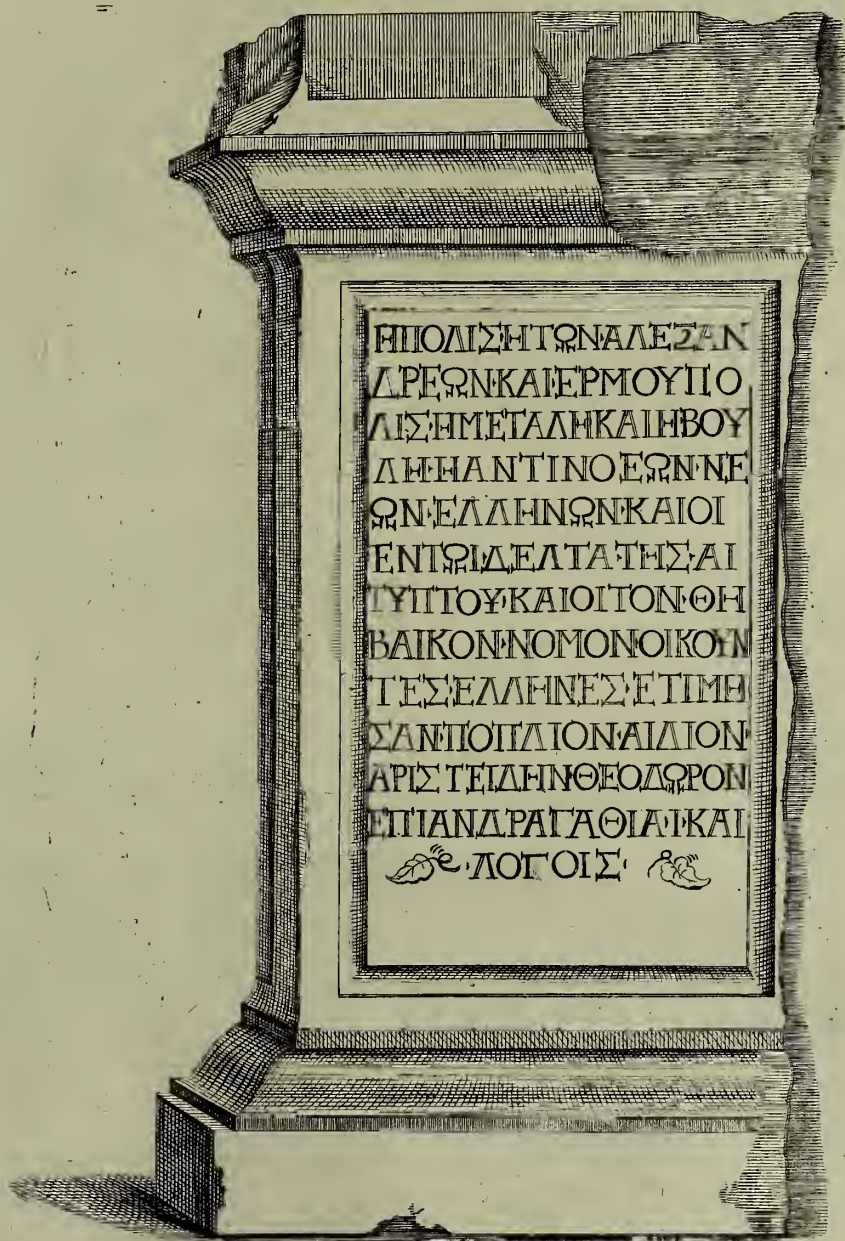 ΗΠΟΛΙΣ·Η·ΤΩΝ·ΑΛΕΞΑΝ
ΔΡΕΩΝ·ΚΑΙ·ΕΡΜΟΥΠΟ
ΛΙΣ·ΗΜΕΓΑΛΗΚΑΙ·ΗΒΟΥ
ΛΗ·Η·ΑΝΤΙΝΟΕΩΝ·ΝΕ
ΩΝ·ΕΛΛΗΝΩΝ·ΚΑΙΟΙ
ΕΝΤΩΙ·ΔΕΛΤΑ·ΤΗΣ·ΑΙ
ΓΥΠΤΟΥ·ΚΑΙΟΙΤΟΝ·ΘΗ
ΒΑΙΚΟΝ·ΝΟΜΟΝ·ΟΙΚΟΥΝ
ΤΕΣ·ΕΛΛΗΝΕΣ·ΕΤΙΜΗ
ΣΑΝ·ΠΟΠΛΙΟΝ·ΑΙΛΙΟΝ·
ΑΡΙΣΤΕΙΔΗΝ·ΘΕΟΔΩΡΟΝ
ΕΠΙΑΝΔΡΑΓΑΘΙΑ·Ι·ΚΑΙ
·ΛΟΓΟΙΣ·